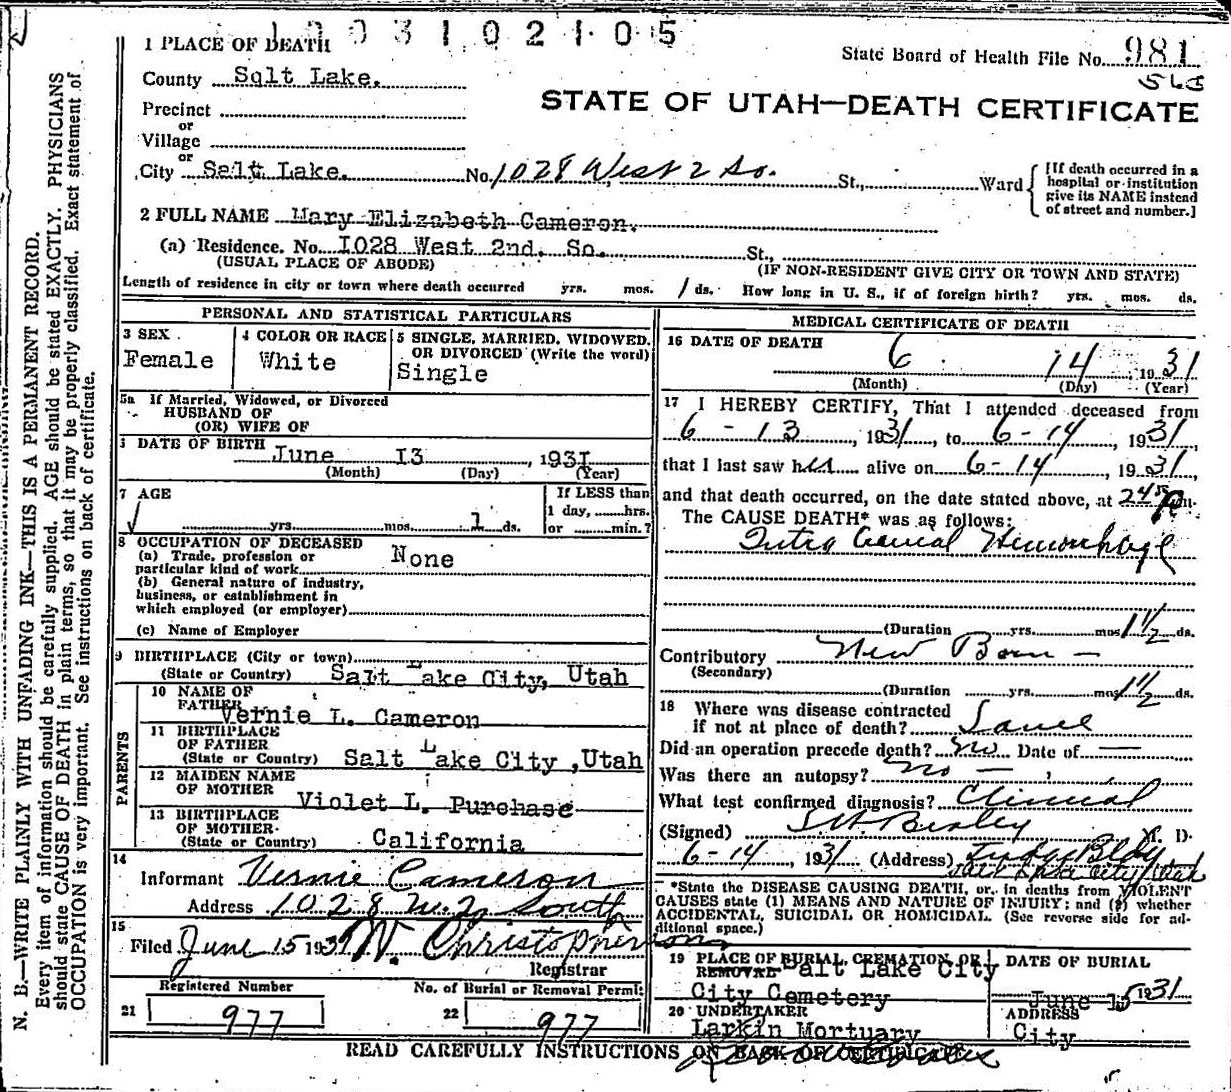 1003102105
1 PLACE OF DEATH
State Board of Health File No. 981
County Sqlt Lake.
563
STATE OF UTAH—DEATH CERTIFICATE
Precinct
or
Village
or
City Salt Lake. No. 1028 West 2 So. St., Ward
[If death occurred in a
hospital or institution
give its NAME instead
of street and number.]
2 FULL NAME Mary Elizabeth Cameron.
(a) Residence. No. I028 West 2nd. So. St.,
(USUAL PLACE OF ABODE) (IF NON-RESIDENT GIVE CITY OR TOWN AND STATE)
Length of residence in city or town where death occurred yrs. mos. 1 ds. How long in U. S., if of foreign birth? yrs. mos. ds.
PERSONAL AND STATISTICAL PARTICULARS
3 SEX 4 COLOR OR RACE 5 SINGLE, MARRIED, WIDOWED.
OR DIVORCED (Write the word)
Female White Single
5a If Married, Widowed, or Divorced
HUSBAND OF
(OR) WIFE OF
DATE OF BIRTH
June I3 , 193I
(Month) (Day) (Year)
7 AGE If LESS than
1 day, hrs.
yrs. mos. 1 ds. or min.?
8 OCCUPATION OF DECEASED
(a) Trade, profession or
particular kind of work None
(b) General nature of industry,
business, or establishment in
which employed (or employer)
(c) Name of Employer
9 BIRTHPLACE (City or town)
(State or Country) Salt Lake City, Utah
PARENTS
10 NAME OF
FATHER Vernie L. Cameron
11 BIRTHPLACE
OF FATHER
(State or Country) Salt Lake City ,Utah
12 MAIDEN NAME
OF MOTHER Violet L. Purchase
13 BIRTHPLACE
OF MOTHER
(State or Country) California
14
Informant Vernie Cameron
Address 1028 W. 2o South
15
Filed June 15 1931 W. Christopherson
Registrar
Registered Number No. of Burial or Removal Permit
21 977 22 977
MEDICAL CERTIFICATE OF DEATH
16 DATE OF DEATH 6 14 1931
(Month) (Day) (Year)
17 I HEREBY CERTIFY, That I attended deceased from
6 - 13 , 1931, to 6-14, 1931,
that I last saw her alive on 6-14, 1931,
and that death occurred, on the date stated above, at 245 Pm.
The CAUSE DEATH* was as follows:
Intra Cranial Hemorrhage
(Duration yrs. mos. 1 1/2 ds.
Contributory New Born -
(Secondary)
(Duration yrs. mos. 1 1/2 ds.
18 Where was disease contracted
if not at place of death? Same
Did an operation precede death? no Date of —
Was there an autopsy? no -
What test confirmed diagnosis? Clinical
(Signed) M. D.
6-14, 1931 (Address) Judge Bldg
Salt Lake City Utah
*State the DISEASE CAUSING DEATH, or, in deaths from VIOLENT
CAUSES state (1) MEANS AND NATURE OF INJURY; and (2) whether
ACCIDENTAL, SUICIDAL OR HOMICIDAL. (See reverse side for ad-
ditional space.)
19 PLACE OF BURIAL, CREMATION, OR
REMOVAL Salt Lake City
City Cemetery
DATE OF BURIAL
June 15 1931
20 UNDERTAKER
Larkin Mortuary
ADDRESS
City
READ CAREFULLY INSTRUCTIONS ON BACK OF CERTIFICATE
N. B.—WRITE PLAINLY WITH UNFADING INK—THIS IS A PERMANENT RECORD.
Every item of information should be carefully supplied. AGE should be stated EXACTLY. PHYSICIANS
should state CAUSE OF DEATH in plain terms, so that it may be properly classified. Exact statement of
OCCUPATION is very important. See instructions on back of certificate.